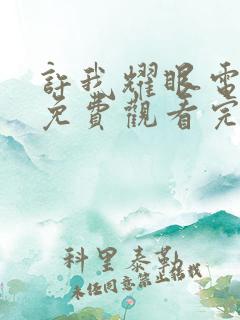 許我耀眼電
免費觀看完
科里泰勒
未经同意禁止转载